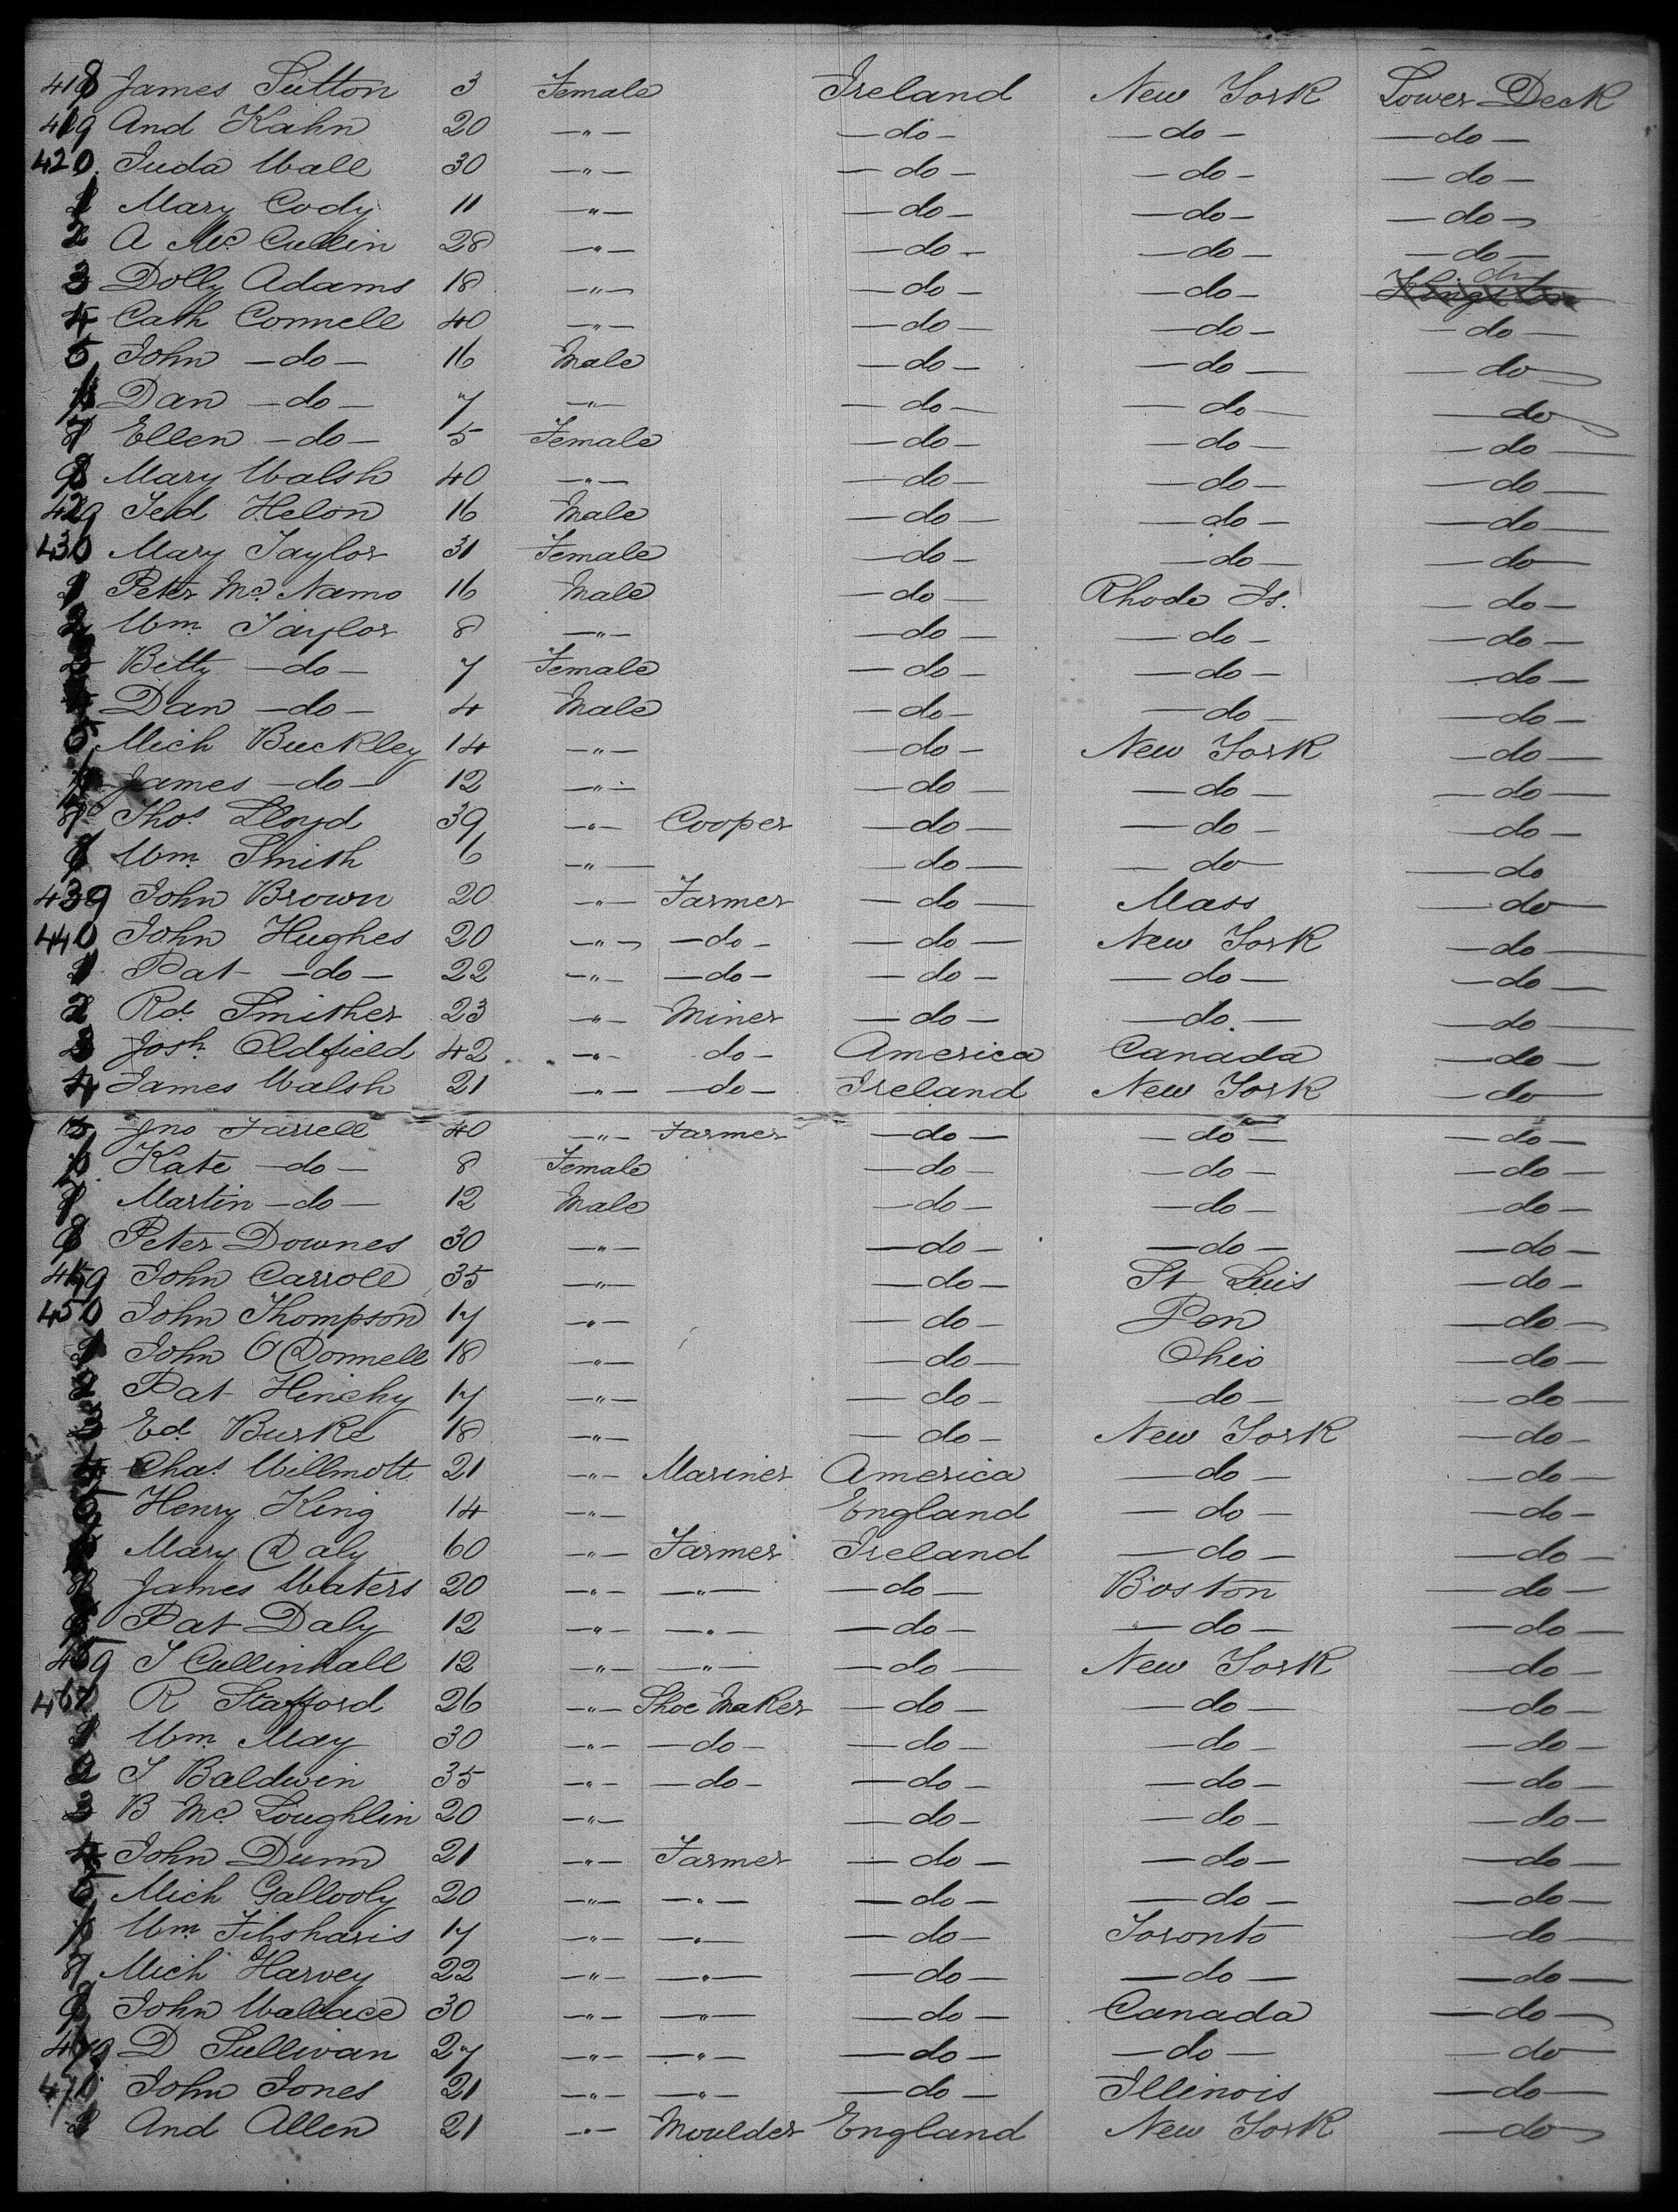 418 James Sutton 3 Female Ireland New York Lower Deck
419 And Kahn 20 —"— —do— —do— —do—
420 Juda Wall 30 —"— —do— —do— —do—
1 Mary Cody 11 —"— —do— —do— —do—
2 A Mc Cullin 28 —"— —do— —do— —do—
3 Dolly Adams 18 —"— —do— —do— Kingston do
4 Cath Connell 40 —"— —do— —do— —do—
5 John —do— 16 Male —do— —do— —do—
6 Dan —do— 7 —"— —do— —do— —do—
7 Ellen —do— 5 Female —do— —do— —do—
8 Mary Walsh 40 —"— —do— —do— —do—
429 Ted Helon 16 Male —do— —do— —do—
430 Mary Taylor 31 Female —do— —do— —do—
1 Peter Mc Namo 16 Male —do— Rhode Is. —do—
2 Wm Taylor 8 —"— —do— —do— —do—
3 Betty —do— 7 Female —do— —do— —do—
4 Dan —do— 4 Male —do— —do— —do—
5 Mich Buckley 14 —"— —do— New York —do—
6 James —do— 12 —"— —do— —do— —do—
7 Thos Lloyd 39 —"— Cooper —do— —do— —do—
8 Wm Smith 6 —"— —do— —do— —do
439 John Brown 20 —"— Farmer —do— Mass —do—
440 John Hughes 20 —"— —do— —do— New York —do—
1 Pat —do— 22 —"— —do— —do— —do— —do—
2 Rd Smither 23 —"— Miner —do— —do— —do—
3 Josh Oldfield 42 —"— do— America Canada —do—
4 James Walsh 21 —"— —do— Ireland New York —do—
5 Jno Farrell 40 —"— Farmer —do— —do— —do—
6 Kate —do— 8 Female —do— —do— —do—
7 Martin —do— 12 Male —do— —do— —do—
8 Peter Downes 30 —"— —do— —do— —do—
449 John Carroll 35 —"— —do— St Luis —do—
450 John Thompson 17 —"— —do— Pen —do—
1 John O Donnell 18 —"— —do— Ohio —do—
2 Pat Hinchy 17 —"— —do— —do— —do—
3 Ed Burke 18 —"— —do— New York —do—
4 Chas Willmott 21 —"— Mariner America —do— —do—
5 Henry King 14 —"— England —do— —do—
Mary Daly 60 —"— Farmer Ireland —do— —do—
7 James Waters 20 —"— —"— —do— Boston —do—
8 Pat Daly 12 —"— —"— —do— —do— —do—
459 J Cullinhall 12 —"— —"— —do— New York —do—
460 R Stafford 26 —"— Shoe Maker —do— —do— —do—
1 Wm May 30 —"— —do— —do— —do— —do—
2 J Baldwin 35 —"— —do— —do— —do— —do—
3 B Mc Loughlin 20 —"— —do— —do— —do—
4 John Dunn 21 —"— Farmer —do— —do— —do—
5 Mich Gallooly 20 —"— —"— —do— —do— —do—
6 Wm Fitsharis 17 —"— —"— —do— Toronto —do—
7 Mich Harvey 22 —"— —"— —do— —do— —do—
8 John Wallace 30 —"— —"— —do— Canada —do—
469 D Sullivan 27 —"— —"— —do— —do— —do—
470 John Jones 21 —"— —"— —do— Illinois —do—
1 And Allen 21 —"— Moulder England New York —do—